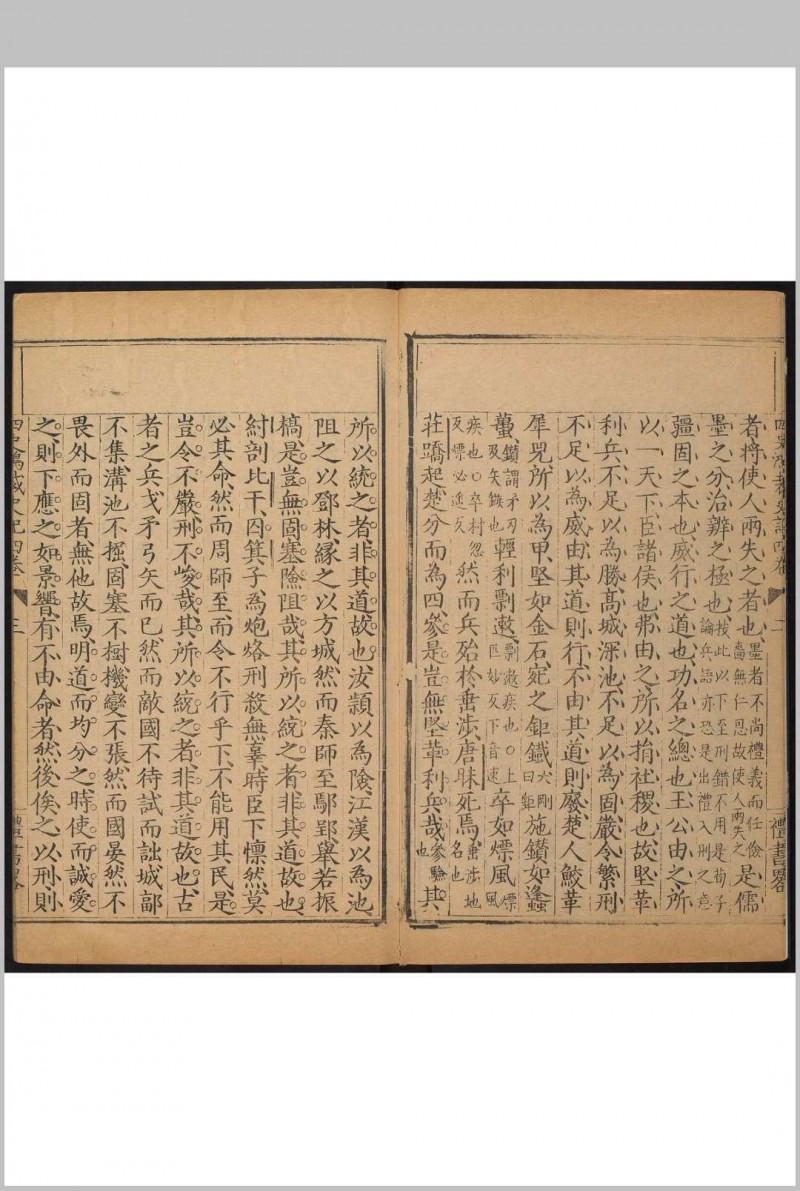 四史鴻裁史記四卷 二 禮書畧
者將使人兩失之者也墨者不尚禮義而任儉嗇無仁恩故使人兩失之是儒
墨之分治辨之極也按此以下至刑錯不用是荀子論兵語亦恐是出禮入刑之意
疆固之本也威行之道也功名之總也王公由之所
以一天下臣諸侯也弗由之所以捐社稷也故堅革
利兵不足以為勝高城深池不足以為固嚴令繁刑
不足以為威由其道則行不由其道則廢楚人鮫革
犀兕所以為甲堅如金石宛之鉅鐵大剛曰鉅施鑚如蠭
蠆鑚謂矛刃及矢鏃也輕利剽遬剽遬疾也○上匹妙反下音速卒如熛風熛風
疾也○卒村忽反熛必遙反然而兵殆於垂涉唐昧死焉垂涉地名也
莊蹻起楚分而為四參是豈無堅革利兵哉參驗也其
所以統之者非其道故也汝潁以為險江漢以為池
阻之以鄧林緣之以方城然而秦師至鄢郢舉若振
槁是豈無固塞險阻哉其所以統之者非其道故也
紂剖比干囚箕子為炮烙刑殺無辜時臣下懍然莫
必其命然而周師至而令不行乎下不能用其民是
豈令不嚴刑不峻哉其所以統之者非其道故也古
者之兵戈矛弓矢而已然而敵國不待試而詘城鄙
不集溝池不掘固塞不樹機變不張然而國晏然不
畏外而固者無他故焉明道而均分之時使而誠愛
之則下應之如景響有不由命者然後俟之以刑則
四史鴻裁史記四卷 三